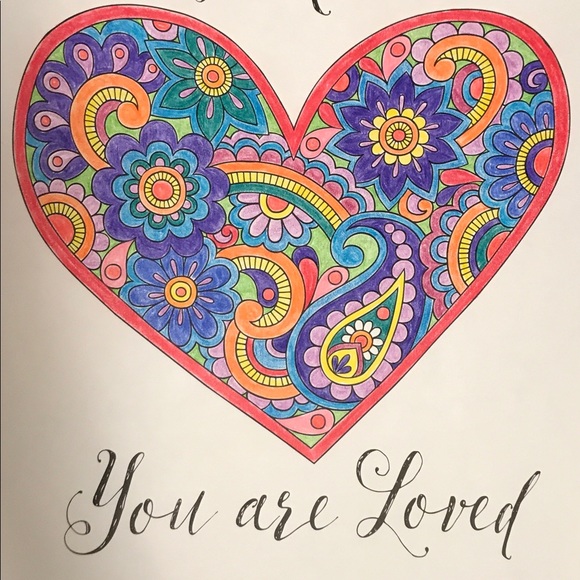 You are Loved